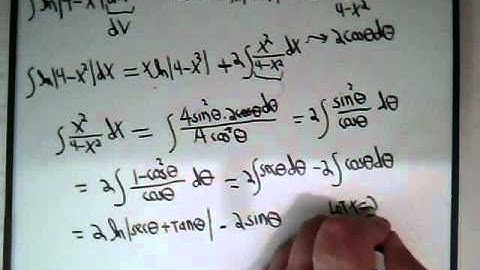 ∫ln|4-x²|
dV
4-x²
∫ln|4-x²|dx = xln|4-x²| + 2∫x²/(4-x²) dx → 2cosθdθ
∫x²/(4-x²) dx = ∫(4sin²θ·2cosθdθ)/(4cos²θ) = 2∫sin²θ/cosθ dθ
= 2∫(1-cos²θ)/cosθ dθ = 2∫secθdθ - 2∫cosθdθ
= 2ln|secθ+Tanθ| - 2sinθ